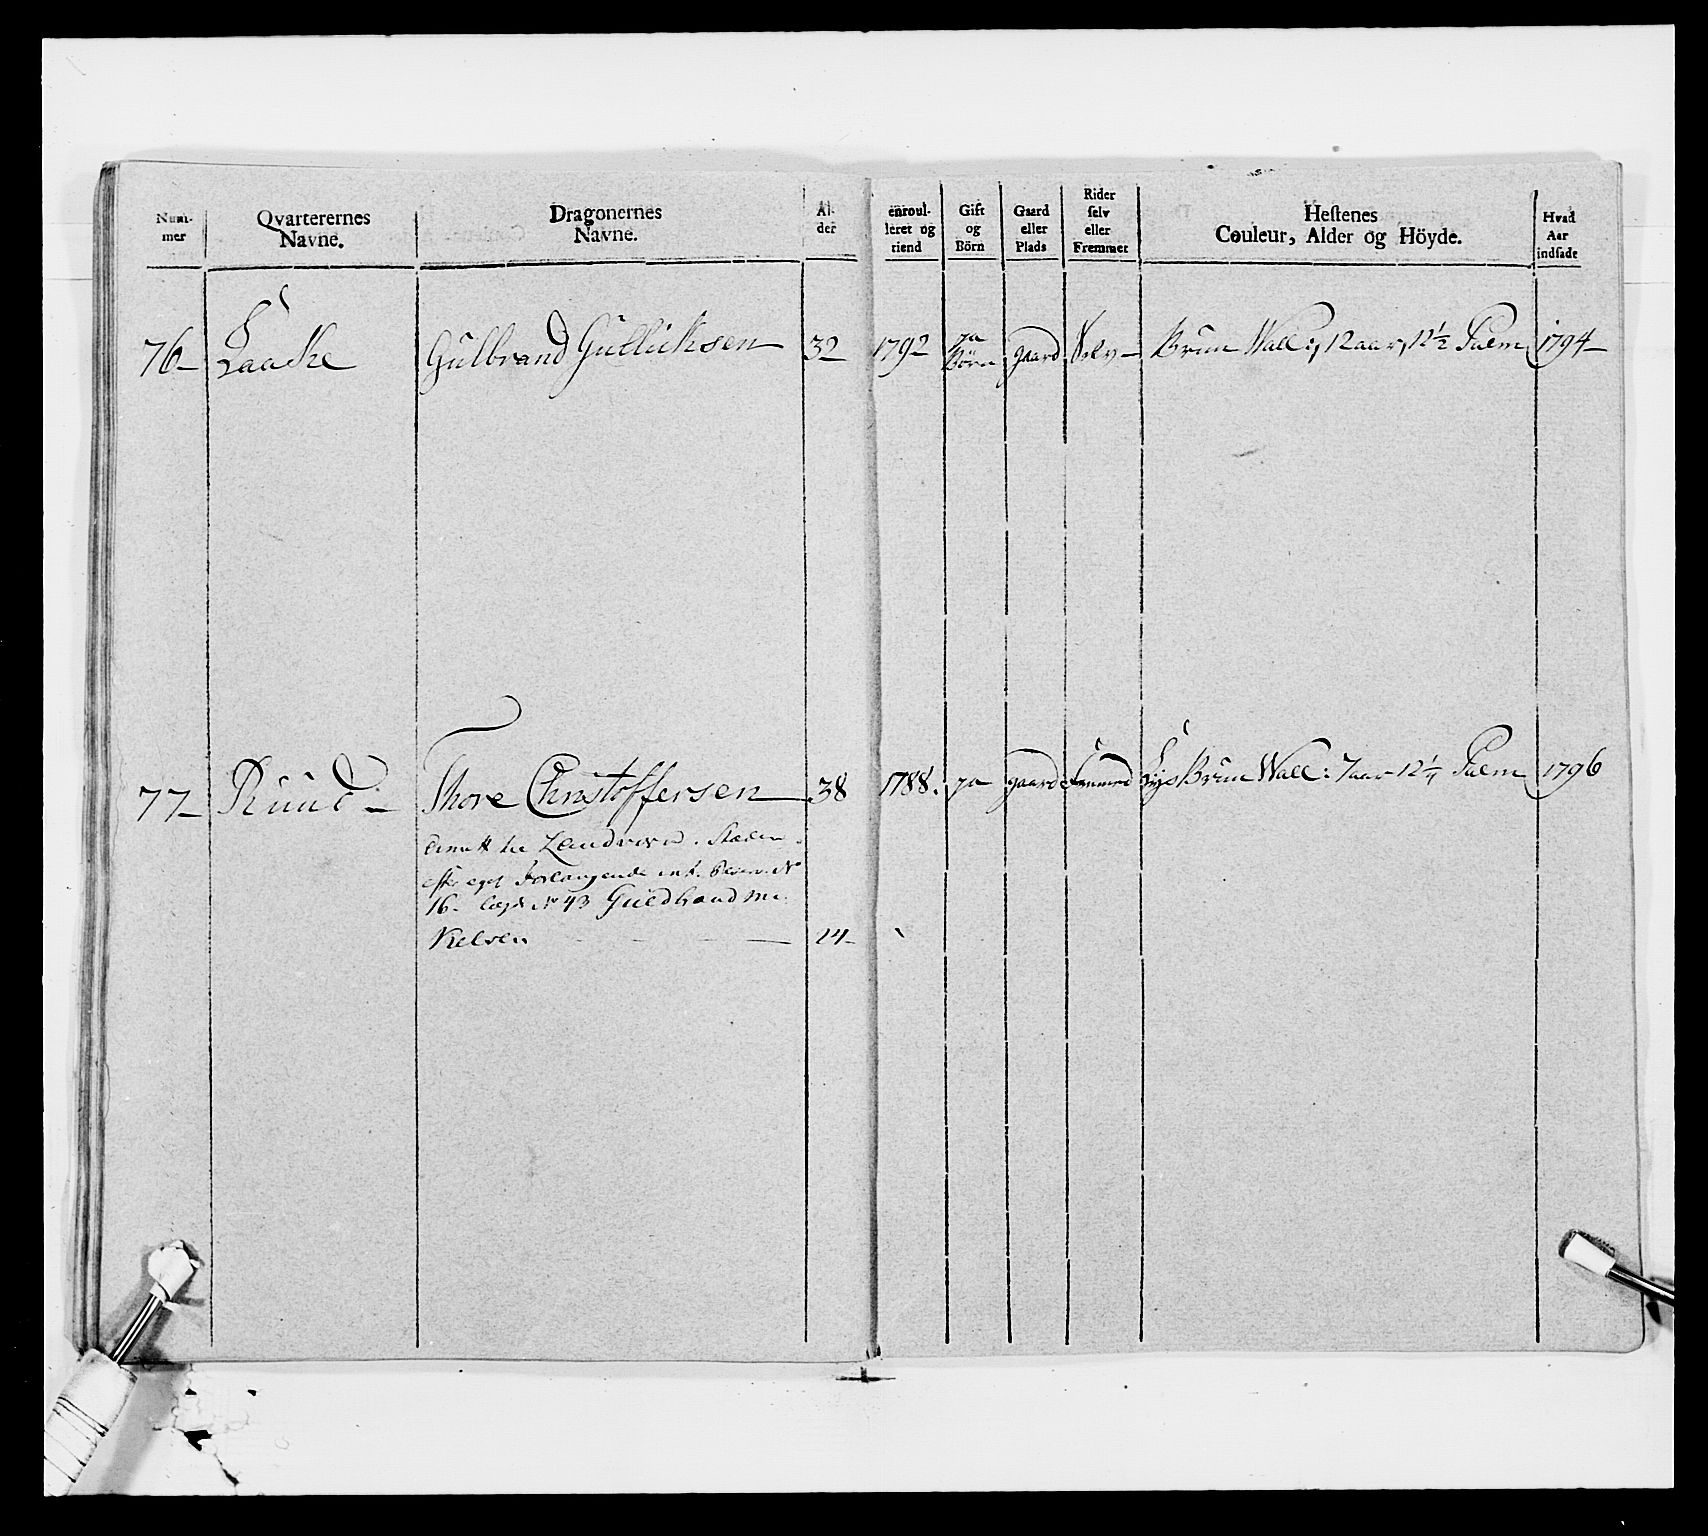 Num-
mer
Qvarterernes
Navne.
Dragonernes
Navne.
Al-
der
enroul-
leret og
tiend
Gift
og
Börn
Gaard
eller
Plads
Rider
selv
eller
Fremmet
Hestenes
Couleur, Alder og Höyde.
Hvad
Aar
indsadt
76 Laake Gulbrand Gulluksen 32 1792 ja Börn gaard selv Brun Wall: 12 aar, 12½ Palm 1794
77 Ruud Thore Christoffersen 38 1788. ja gaard fremed Lys Brun Wall: 7 aar 12¼ Palm 1796
Landværn. Steden
efter eget Forlangende No
16 No 43 Guldbrand Mi-
kelsen 24